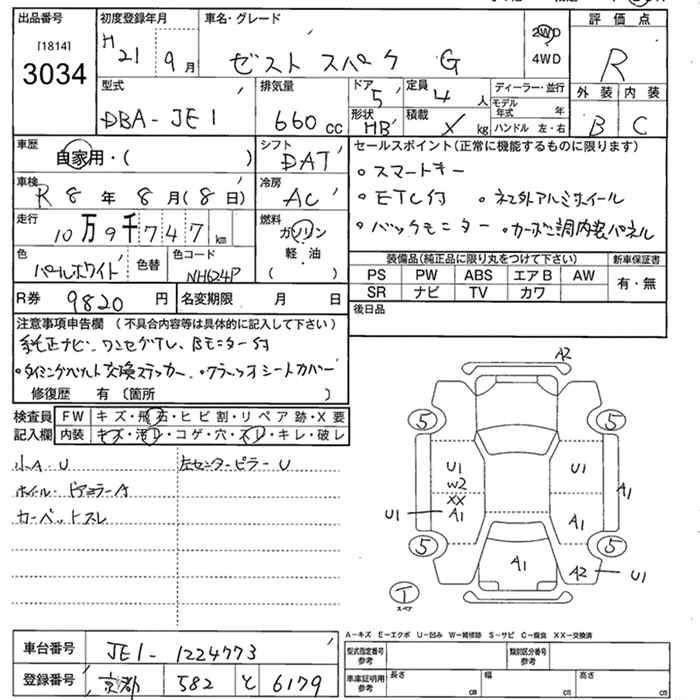 出品番号 初度登録年月 車名・グレード 評価点
[1814] H 21 9月 ゼスト スパーク G 2WD R
3034 4WD
型式 排気量 ドア 定員 ディーラー・並行 外装 内装
DBA-JE1 660cc 5 4人 モデル年式 年 B C
形状 HB 積載 kg ハンドル 左・右
車歴 自家用・( ) シフト DAT セールスポイント(正常に機能するものに限ります)
車検 冷房 ◦スマートキー
R8年8月(8日) AC ◦ETC付 ◦社外アルミホイール
走行 燃料 ◦バックモニター ◦カーボン調内装パネル
10万9千747km ガソリン
軽油
色 色替 色コード ( ) 装備品(純正品に限り丸をつけて下さい) 新車保証書
パールホワイト NH624P PS PW ABS エアB AW 有・無
SR ナビ TV カワ
R券 9820円 名変期限 月 日 後日品
注意事項申告欄(不具合内容等は具体的に記入して下さい)
純正ナビ、ワンセグTV、Bモニター付
◦タイミングベルト交換ステッカー ◦クラッツィオシートカバー
修復歴 有〔箇所 〕
検査員 FW キズ・飛石・ヒビ割・リペア跡・X要
記入欄 内装 キズ・汚レ・コゲ・穴・スレ・キレ・破レ
小A・U 左センターピラーU
ホイール・ドアミラーA
カーペットスレ
A2
5 5
U1 U1
W2
XX A1
U1 A1 A1
5 5
A1 A2 U1
T
スペア
A-キズ E-エクボ U-凹み W-補修跡 S-サビ C-腐食 XX-交換済
車台番号 JE1-1224773 型式指定番号 参考 類別区分番号 参考
登録番号 京都 582 と 6179 車庫証明用 参考 長さ cm 幅 cm 高さ cm